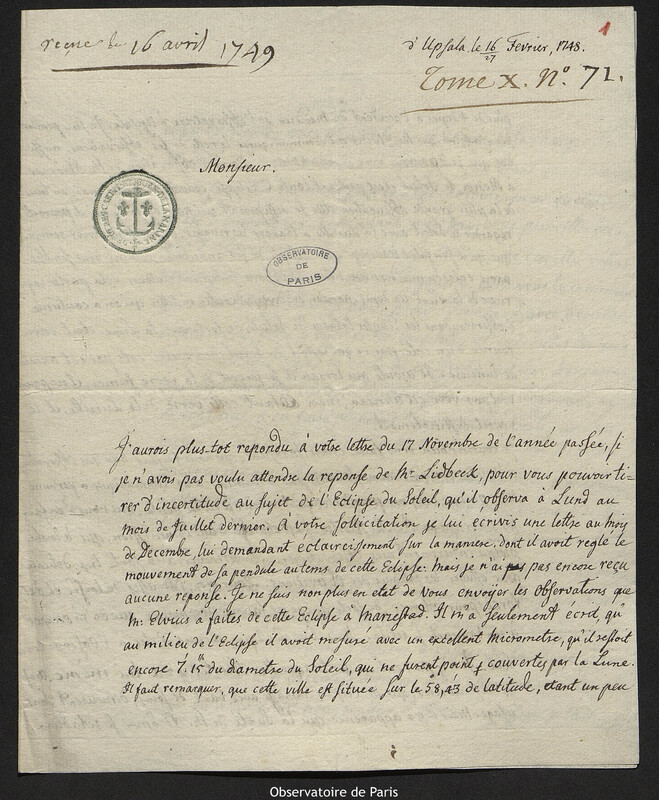 reçue le 16 avril 1749
1
d'Upsala. le 16/27 Février, 1748.
Tome X. N.º 71.
Monsieur.
OBSERVATOIRE
DE
PARIS
J'aurois plus-tot repondu à vôtre lettre du 17 Novembre de l'année passée, si
je n'avois pas voulu attendre la reponse de Mr. Lidbeck, pour vous pouvoir ti-
rer d'incertitude au sujet de l'Eclipse du Soleil, qu'il observa à Lund au
mois de Juillet dernier. à vôtre sollicitation je lui écrivis une lettre au moy
de Decembre, lui demandant éclaireissement sur la maniere, dont il avoit reglé le
mouvement de sa pendule au tems de cette Eclipse. mais je n'ai pas encore reçu
aucune reponse. Je ne suis non plus en etat de vous envoyer les Observations que
Mr. Elvius à faites de cette Eclipse à Mariestad. Il m'a seulement écrit, qu'
au milieu de l'Eclipse il avoit mesuré avec un excellent Micrometre, qu'il restoit
encore 7. 15" du diametre du Soleil, qui ne furent point couvertes par la Lune.
Il faut remarquer, que cette ville est située sur le 58, 43 de latitude, etant un peu
Observatoire de Paris